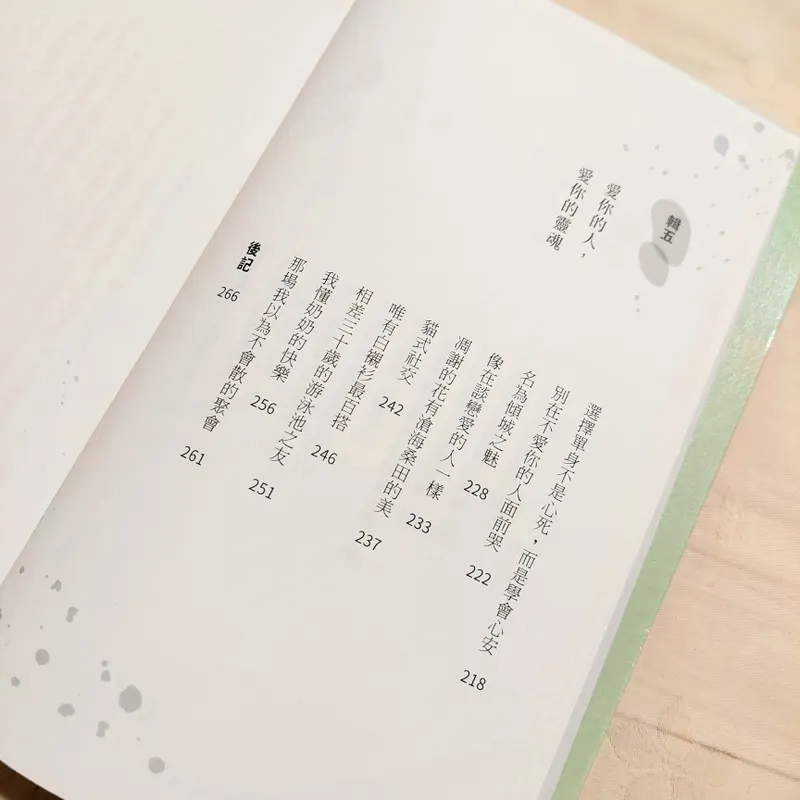 輯五
愛你的人，
愛你的靈魂
選擇單身不是心死，而是學會心安 218
別在不愛你的人面前哭 222
名為傾城之魅 228
像在談戀愛的人一樣 233
凋謝的花有滄海桑田的美 237
貓式社交 242
唯有白襯衫最百搭 246
相差三十歲的游泳池之友 251
我懂奶奶的快樂 256
那場我以為不會散的聚會 261
後記 266